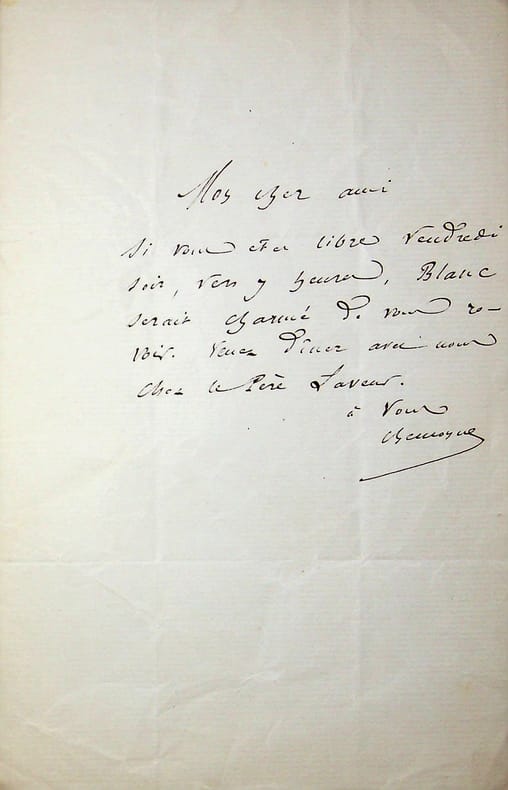 Mon cher ami
Si vous êtes libre Vendredi
soir, vers 7 heures, Blanc
serait charmé de vous re-
voir. Venez dîner avec nous
chez le Père Laveur.
à vous